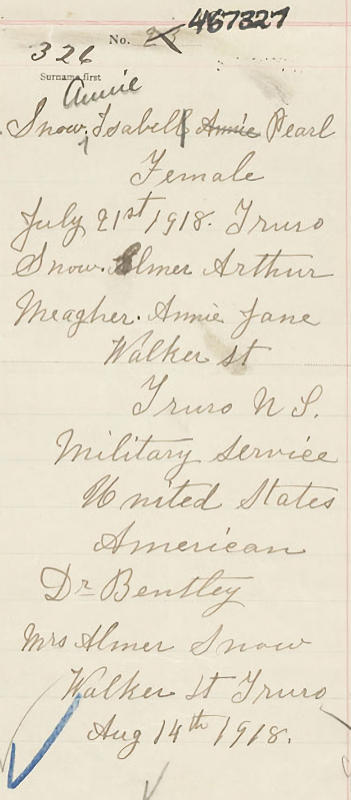 No. 23 467327
326
Surname first
Annie
Snow, Isabell Annie Pearl
Female
July 21st 1918. Truro
Snow. Elmer Arthur
Meagher. Annie Jane
Walker St
Truro N S.
Military service
United States
American
Dr Bentley
Mrs Elmer Snow
Walker St Truro
Aug 14th 1918.